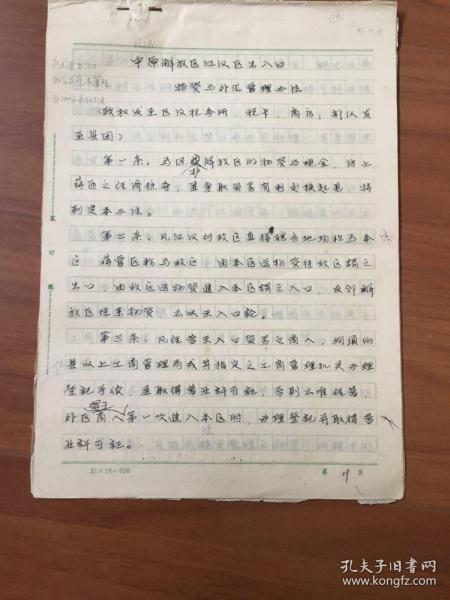 中原解放区江汉区出入口
物资与外汇管理办法
(政权发至区以税务所、税卡、商店；部队发
至县团)
第一条：为保护解放区的物资与现金，防止
蒋区之经济掠夺，并争取贸易有利交换起见，特
制定本办法。
第二条：凡江汉行政区直接辖各地均称为本
区，蒋管区称为敌区，由本区运物资往敌区谓之
出口，由敌区运物资进入本区谓之入口，友邻解
放区往来物资，不以出入口论。
第三条：凡经营出入口贸易之商人，均须向
县以上工商管理局或其指定之工商管理机关办理
登记手续，并取得营业许可证，否则不准经营。
外区商人第一次进入本区时，办理登记并取得营
业许可证。
装订线
21×16=336
第 页
孔夫子旧书网
www.kongfz.com